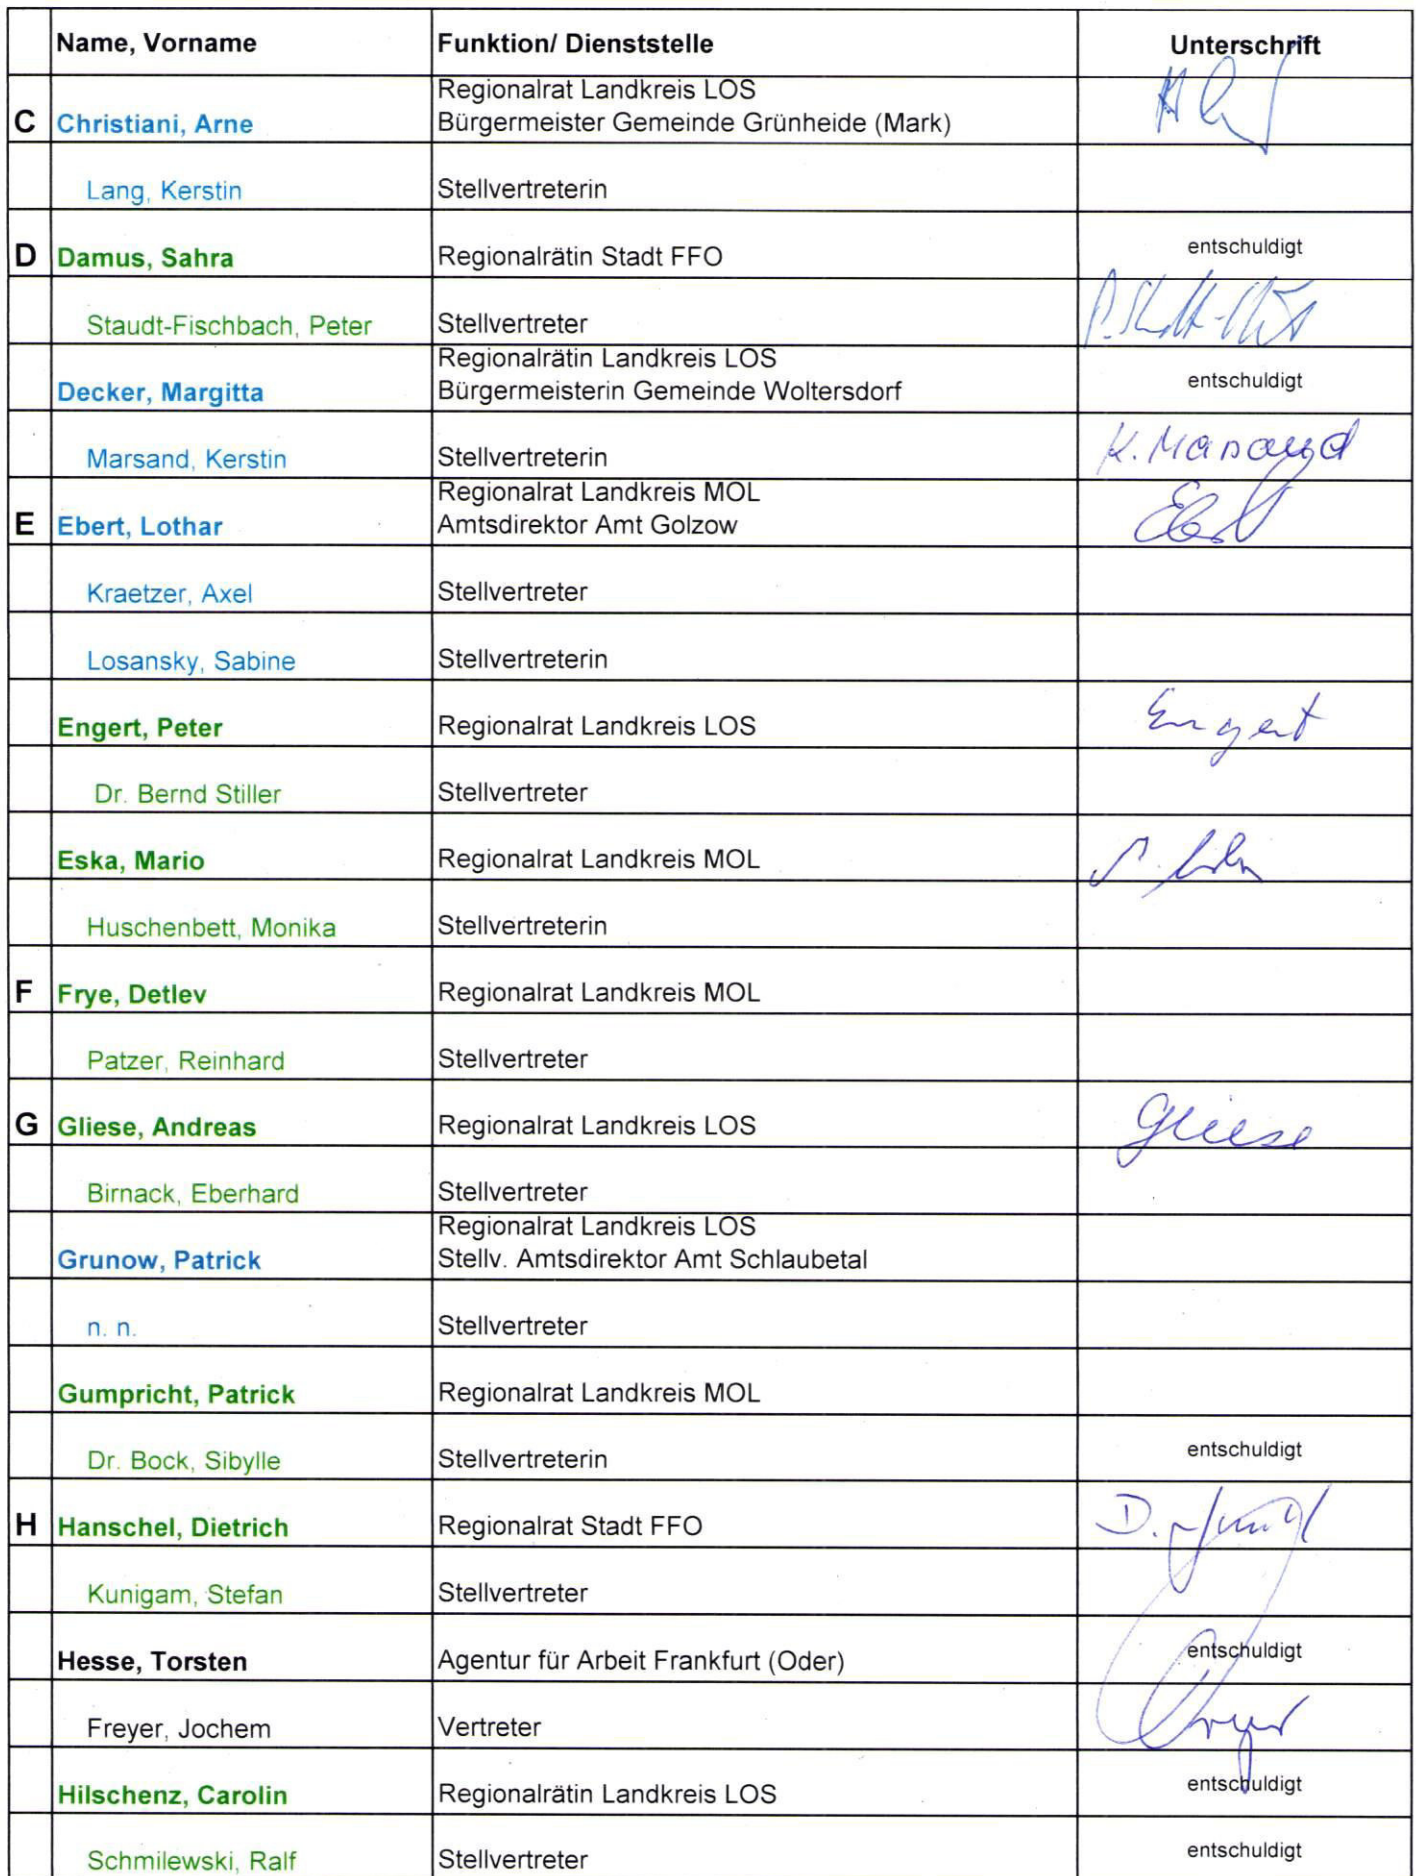 Name, Vorname Funktion/ Dienststelle Unterschrift
Regionalrat Landkreis LOS
C Christiani, Arne Bürgermeister Gemeinde Grünheide (Mark)
Lang, Kerstin Stellvertreterin
D Damus, Sahra Regionalrätin Stadt FFO entschuldigt
Staudt-Fischbach, Peter Stellvertreter
Regionalrätin Landkreis LOS
Decker, Margitta Bürgermeisterin Gemeinde Woltersdorf entschuldigt
Marsand, Kerstin Stellvertreterin K. Marsand
Regionalrat Landkreis MOL
E Ebert, Lothar Amtsdirektor Amt Golzow Ebert
Kraetzer, Axel Stellvertreter
Losansky, Sabine Stellvertreterin
Engert, Peter Regionalrat Landkreis LOS Engert
Dr. Bernd Stiller Stellvertreter
Eska, Mario Regionalrat Landkreis MOL
Huschenbett, Monika Stellvertreterin
F Frye, Detlev Regionalrat Landkreis MOL
Patzer, Reinhard Stellvertreter
G Gliese, Andreas Regionalrat Landkreis LOS Gliese
Birnack, Eberhard Stellvertreter
Regionalrat Landkreis LOS
Grunow, Patrick Stellv. Amtsdirektor Amt Schlaubetal
n. n. Stellvertreter
Gumpricht, Patrick Regionalrat Landkreis MOL
Dr. Bock, Sibylle Stellvertreterin entschuldigt
H Hanschel, Dietrich Regionalrat Stadt FFO
Kunigam, Stefan Stellvertreter
Hesse, Torsten Agentur für Arbeit Frankfurt (Oder) entschuldigt
Freyer, Jochem Vertreter
Hilschenz, Carolin Regionalrätin Landkreis LOS entschuldigt
Schmilewski, Ralf Stellvertreter entschuldigt